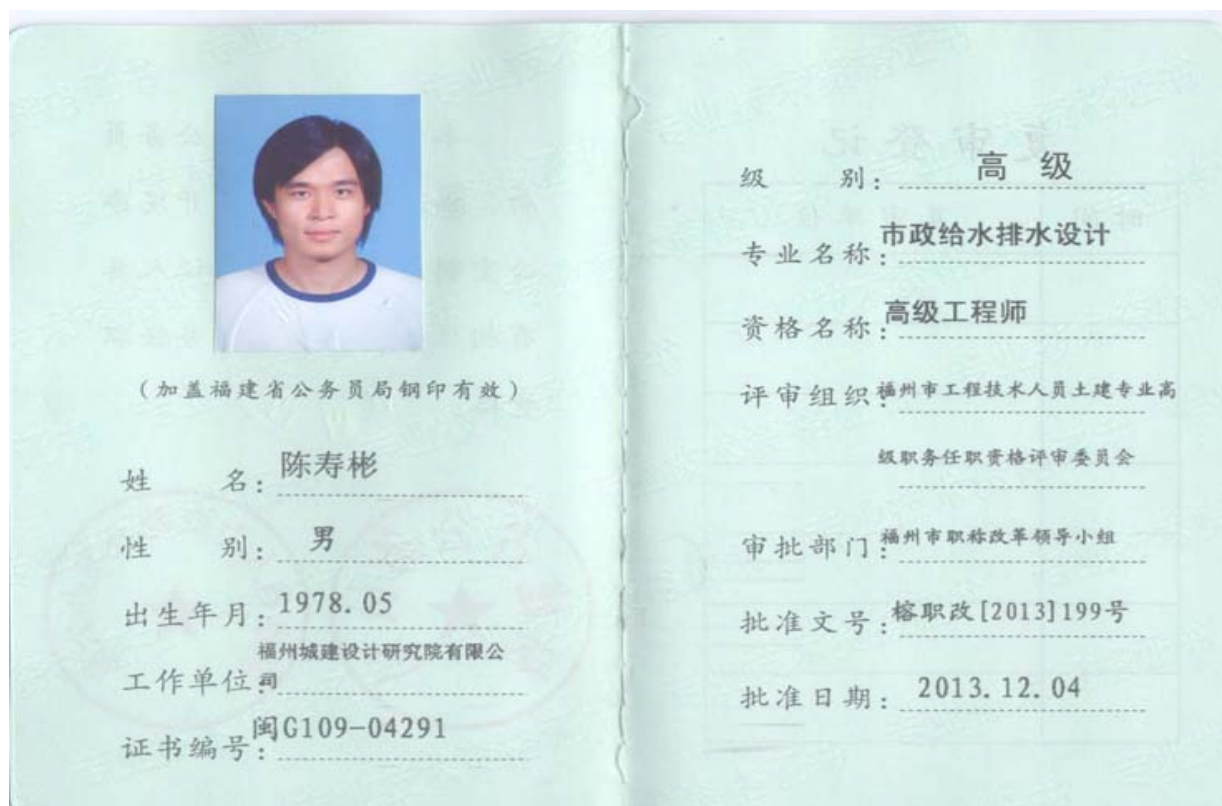 (加盖福建省公务员局钢印有效)
姓 名: 陈寿彬
性 别: 男
出生年月: 1978.05
工作单位: 福州城建设计研究院有限公
司
证书编号: 闽G109-04291
级 别: 高 级
专业名称: 市政给水排水设计
资格名称: 高级工程师
评审组织: 福州市工程技术人员土建专业高
级职务任职资格评审委员会
审批部门: 福州市职称改革领导小组
批准文号: 榕职改[2013]199号
批准日期: 2013.12.04